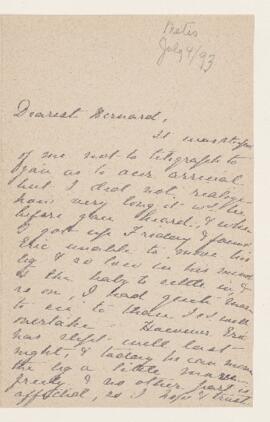 Metis
July 4/93
Dearest Bernard,
It was
of me not to telegraph to
you as to our arrival
but I did not realize
how very long it will be
before you heard, & when
I got up Friday & found
Eric unable to move his
leg & so low in his mind
& the baby to settle in &
so on, I had quite
to see to than I could
overtake. However Eric
has slept well last
night, & today he can move
the leg a little more
freely & no other part is
affected, so I hope & trust